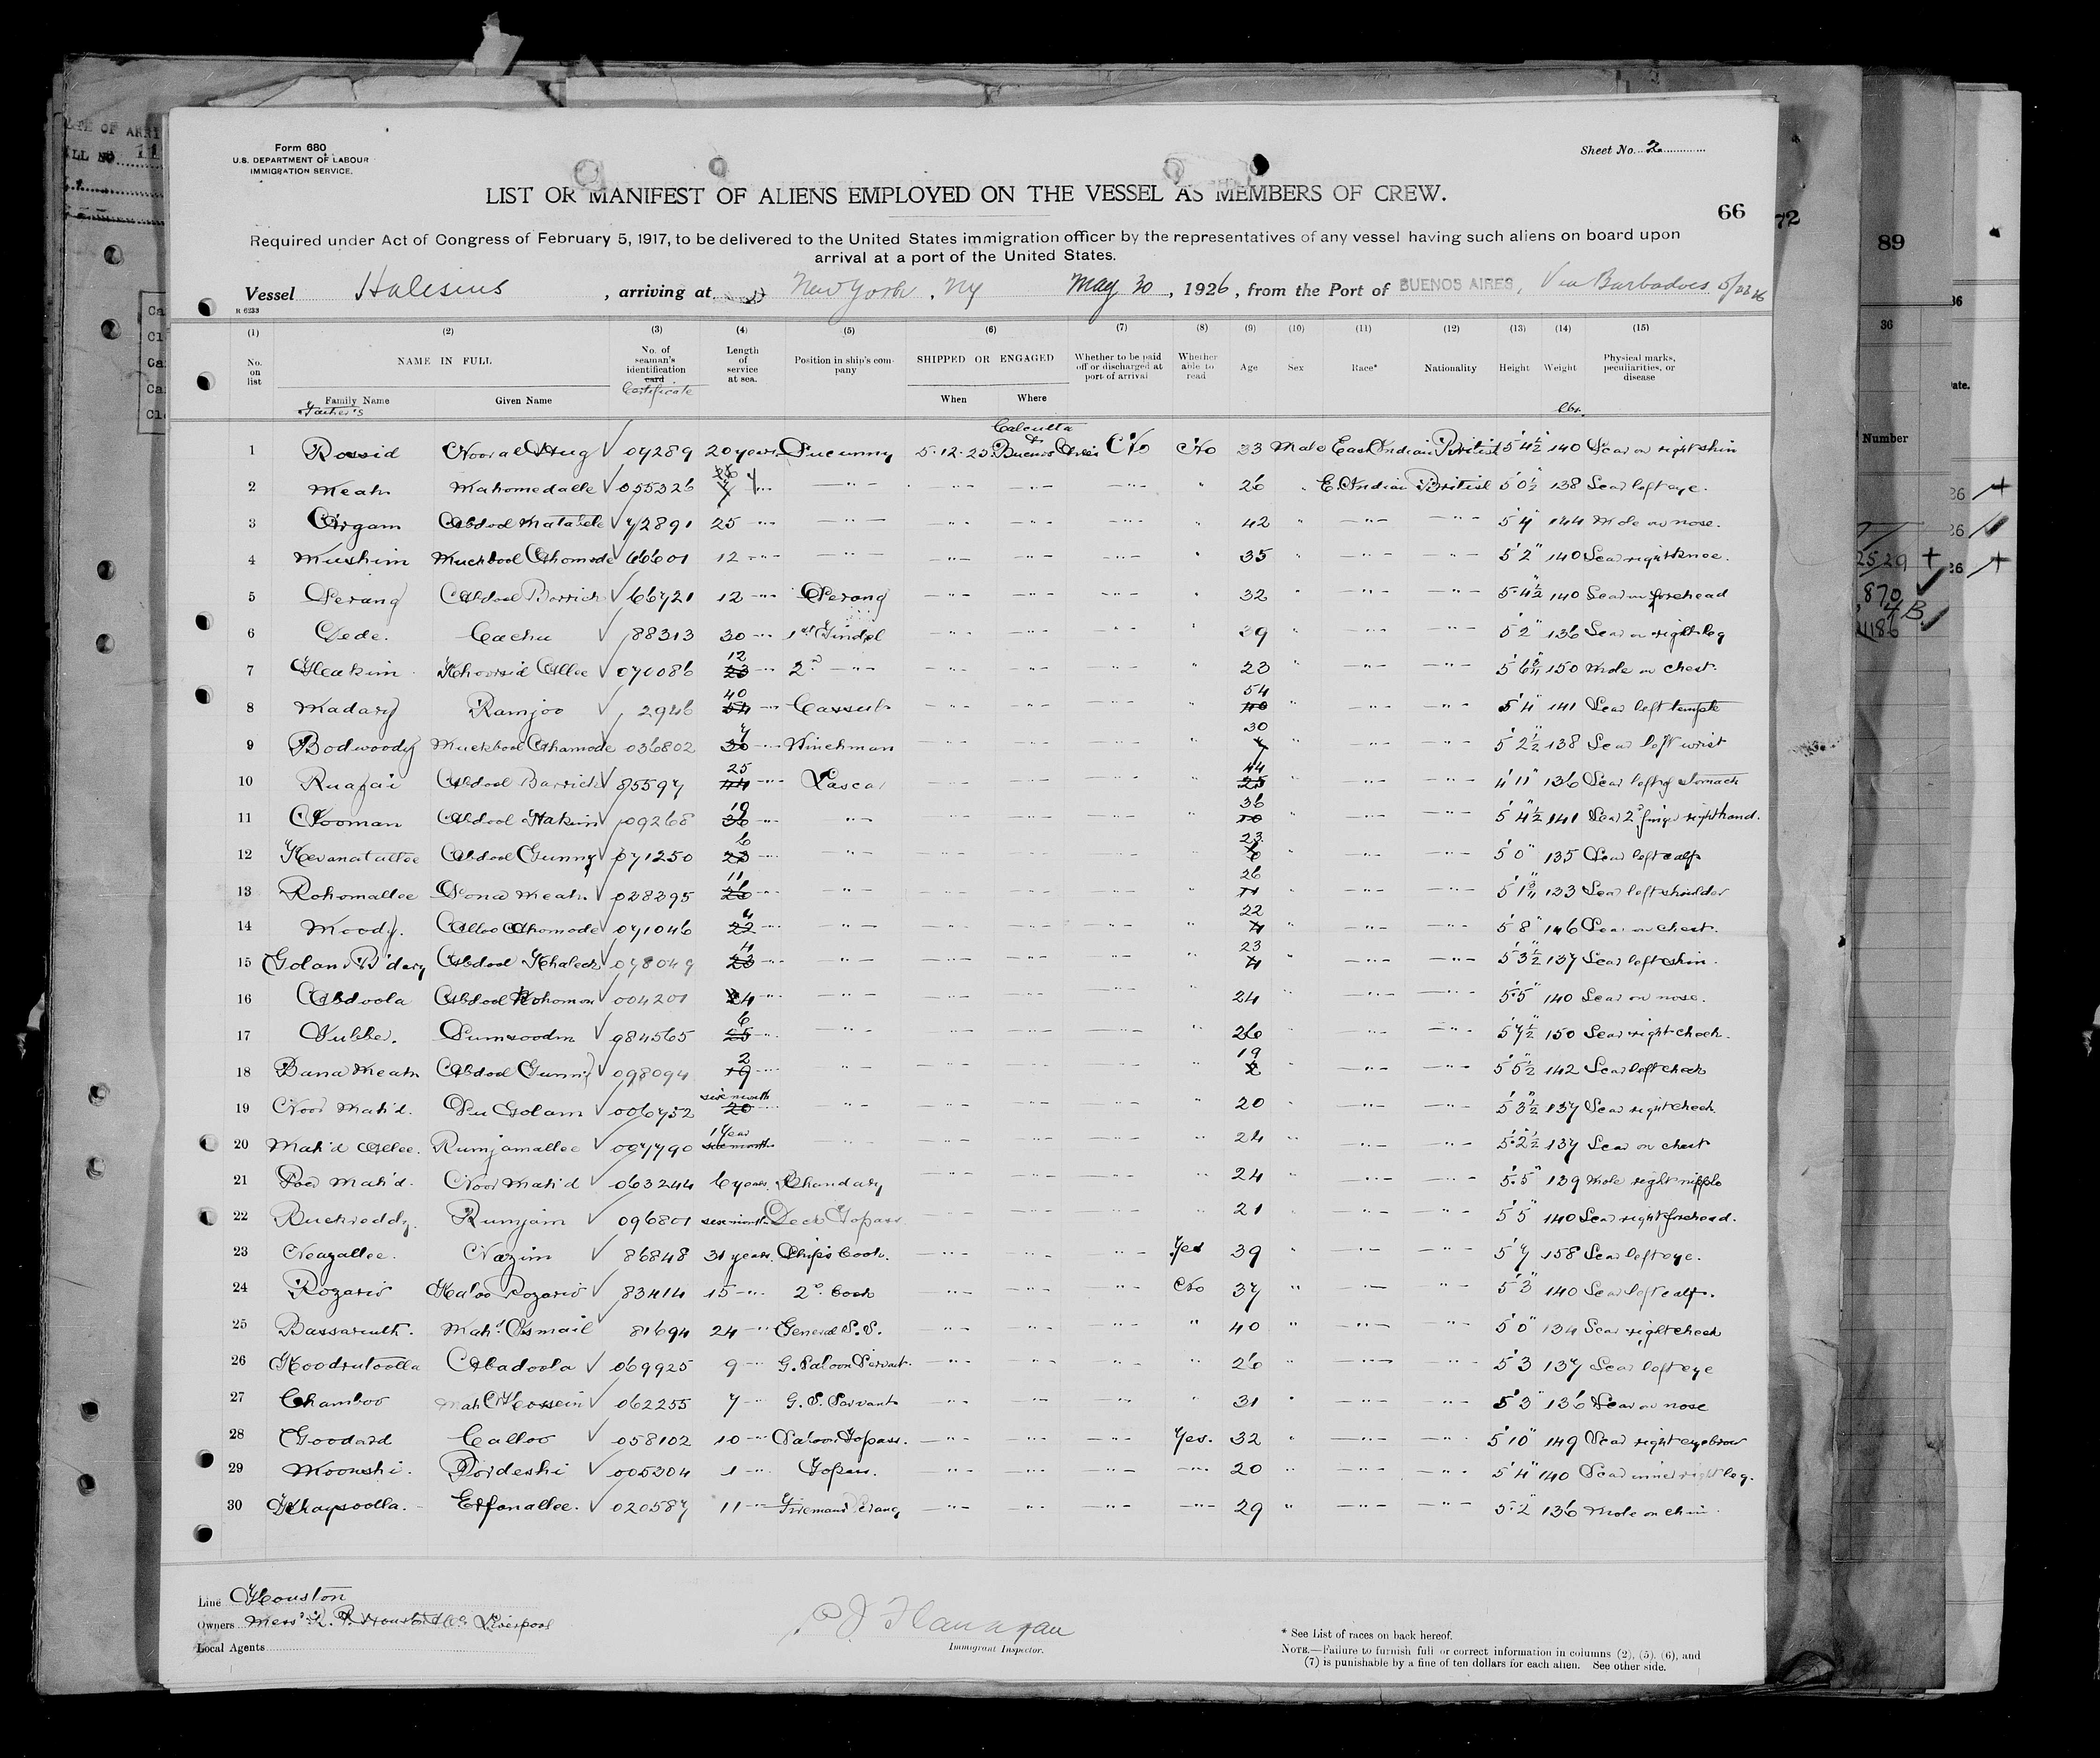 Form 680
U.S. DEPARTMENT OF LABOUR
IMMIGRATION SERVICE.
Sheet No. 2
LIST OR MANIFEST OF ALIENS EMPLOYED ON THE VESSEL AS MEMBERS OF CREW.
66
Required under Act of Congress of February 5, 1917, to be delivered to the United States immigration officer by the representatives of any vessel having such aliens on board upon
arrival at a port of the United States.
Vessel Halesius, arriving at New York, Ny May 30, 1926, from the Port of BUENOS AIRES, Via Barbadoes
R 6233
(1) (2) (3) (4) (5) (6) (7) (8) (9) (10) (11) (12) (13) (14) (15)
No. on list NAME IN FULL No. of seaman's identification card Certificate Length of service at sea. Position in ship's company SHIPPED OR ENGAGED Whether to be paid off or discharged at port of arrival Whether able to read Age Sex Race* Nationality Height Weight Physical marks, peculiarities, or disease
Family Name Father's Given Name When Where lbs.
1 Rossid 04289 20 years 5.12.25 Calcutta & Buenos Aires No No 33 Male East Indian British 5'4½ 140 Scar on right shin
2 Meah Mahomedalle 055326 " 26 " E. Indian British 5'0½ 138 Scar left eye.
3 Abdool 72891 25 " 42 " 5'4" 144 Mole on nose.
4 Mushim Muckbool Ahomode 66601 12 " 35 " 5'2" 140 Scar right knee.
5 Serang Abdool Barrick 66721 12 " Serang 32 " 5'4½ 140 Scar on forehead
6 Dede. Cachu 88313 30 " 1st Tindel 39 " 5'2" 136 Scar on right leg
7 Heakim Khorsid Allee 070086 12 23 " 2d " 23 " 150 Mole on chest.
8 Madary Ramjoo 2946 40 54 " Cassub 54 40 " 5'4" 141 Scar left temple
9 Bodwoody Muckbool Ahamode 036802 7 30 " Winchman 30 7 " 5'2½ 138 Scar left wrist
10 Abdool Barrick 85597 25 44 " Lascar 44 25 " 4'11" 136 Scar left of stomach
11 Nooman Abdool Hakim 09268 10 36 " 36 10 " 5'4½ 141 Scar 2d finger right hand.
12 Abdool Gunny 071250 6 23 " 23 6 " 5'0" 135 Scar left calf
13 Rohomallee Sona Meah 028295 11 26 " 26 11 " 133 Scar left shoulder
14 Moody. Alloo Ahomode 071046 4 22 " 22 4 " 5'8" 146 Scar on chest.
15 Abdool Khaleck 078049 4 23 " 23 4 " 5'3½ 137 Scar left shin.
16 Abdoola Abdool Rohomon 004201 " 24 " 5'5" 140 Scar on nose.
17 Sumsoodin 984565 6 25 " 26 " 5'7½ 150 Scar right cheek.
18 Bana Meah Abdool Gunny 098094 2 19 " 19 2 " 5'5½ 142 Scar left cheek
19 Noor Mah'd. Golam 006752 six month 20 " 20 " 5'3½ 137 Scar right cheek.
20 Mah'd Allee. Rumjamallee 007790 1 Year six month 24 " 5'2½ 137 Scar on chest
21 Mah'd. Noor Mah'd 063244 6 years. Bhandary 24 " 5'5" 139 Mole right nipple
22 Buckreddy. Rumjam 096801 six month Deck Topass 21 " 5'5" 140 Scar right forehead.
23 Neazallee. Nazim 86848 31 years. Ship's Cook. Yes 39 " 5'7 158 Scar left eye.
24 Rozario Kaloo Rozario 83414 15 " 2d Cook No 37 " 5'3" 140 Scar left calf.
25 Mahd. Ismail 81694 24 " General S.S. " 40 " 5'0" 134 Scar right cheek
26 Koodrutoolla Abadoola 069925 9 " G. Saloon Servant. " 26 " 5'3 137 Scar left eye
27 Chamboo Mah'd Hossein 062255 7 " G. S. Servant " 31 " 5'3" 136 Scar on nose
28 Goodard Calloo 058102 10 " Saloon Topass. Yes. 32 " 5'10" 149 Scar right eyebrow
29 Moonshi. 005304 1 " Topass. " 20 " 5'4" 140 Scar inner right leg.
30 Erfanallee. 020587 11 " Fireman Serang " 29 " 5'2" 136 Mole on chin
Line Houston
Owners Messrs R. P. Houston & Co. Liverpool
Local Agents
P J Flanagan
Immigrant Inspector.
* See List of races on back hereof.
NOTE.—Failure to furnish full or correct information in columns (2), (5), (6), and
(7) is punishable by a fine of ten dollars for each alien. See other side.
72
89
36
Number
2529
870
4B
1186